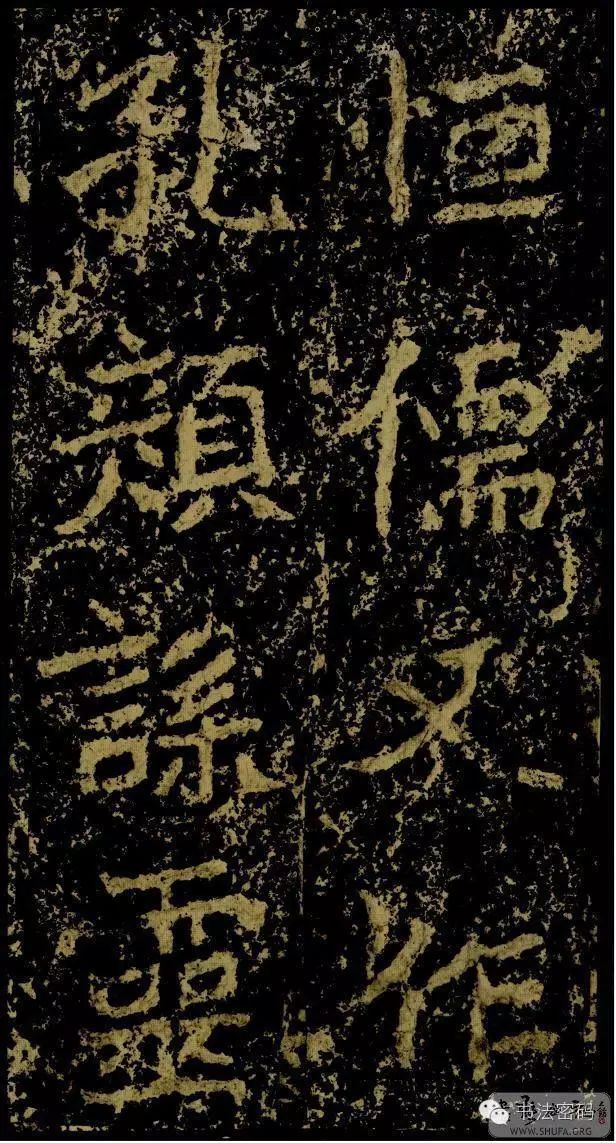 恒儒又作
乳顔靈
书法密码
WWW.SHUFA.ORG